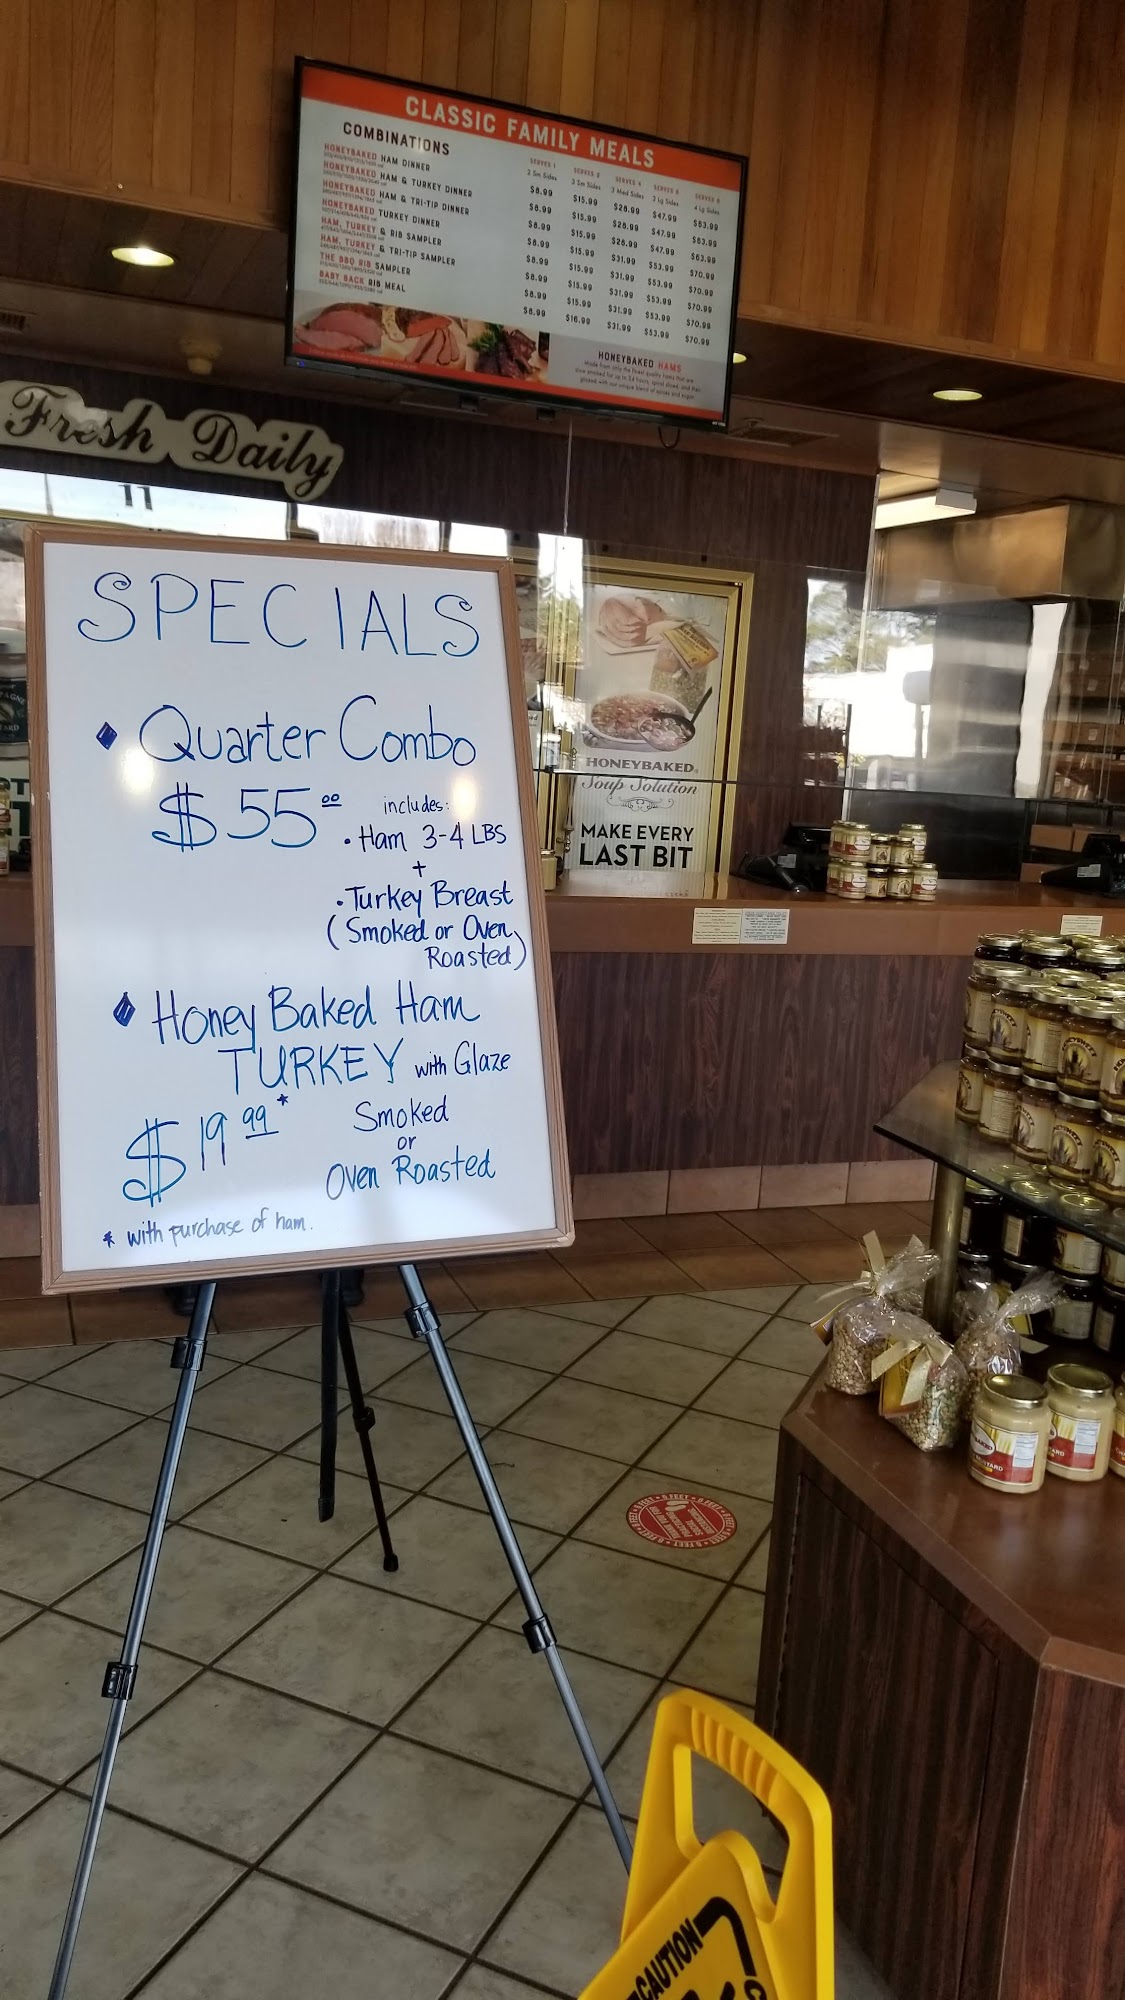 CLASSIC FAMILY MEALS
COMBINATIONS
SERVES 1 SERVES 2 SERVES 4 SERVES 6 SERVES 8
2 Sm Sides 3 Sm Sides 3 Med Sides 3 Lg Sides 4 Lg Sides
HONEYBAKED HAM DINNER $8.99 $15.99 $28.99 $47.99 $63.99
HONEYBAKED HAM & TURKEY DINNER $8.99 $15.99 $28.99 $47.99 $63.99
HONEYBAKED HAM & TRI-TIP DINNER $8.99 $15.99 $28.99 $47.99 $63.99
HONEYBAKED TURKEY DINNER $8.99 $15.99 $31.99 $53.99 $70.99
HAM, TURKEY & RIB SAMPLER $8.99 $15.99 $31.99 $53.99 $70.99
HAM, TURKEY & TRI-TIP SAMPLER $8.99 $15.99 $31.99 $53.99 $70.99
THE BBQ RIB SAMPLER $8.99 $15.99 $31.99 $53.99 $70.99
BABY BACK RIB MEAL $16.99 $31.99 $53.99 $70.99
HONEYBAKED HAMS
Made from only the finest quality hams that are
slow smoked for up to 24 hours, spiral sliced, and then
glazed with our unique blend of spices and sugar.
Fresh Daily
11
SPECIALS
Quarter Combo
$55.00 includes:
• Ham 3-4 LBS
+
• Turkey Breast
(Smoked or Oven
Roasted)
Honey Baked Ham
TURKEY with Glaze
$19.99* Smoked
or
Oven Roasted
* with purchase of ham.
HONEYBAKED®
Soup Solution
MAKE EVERY
LAST BIT
6 FEET
THANK YOU FOR
PRACTICING
SOCIAL
DISTANCING
CAUTION